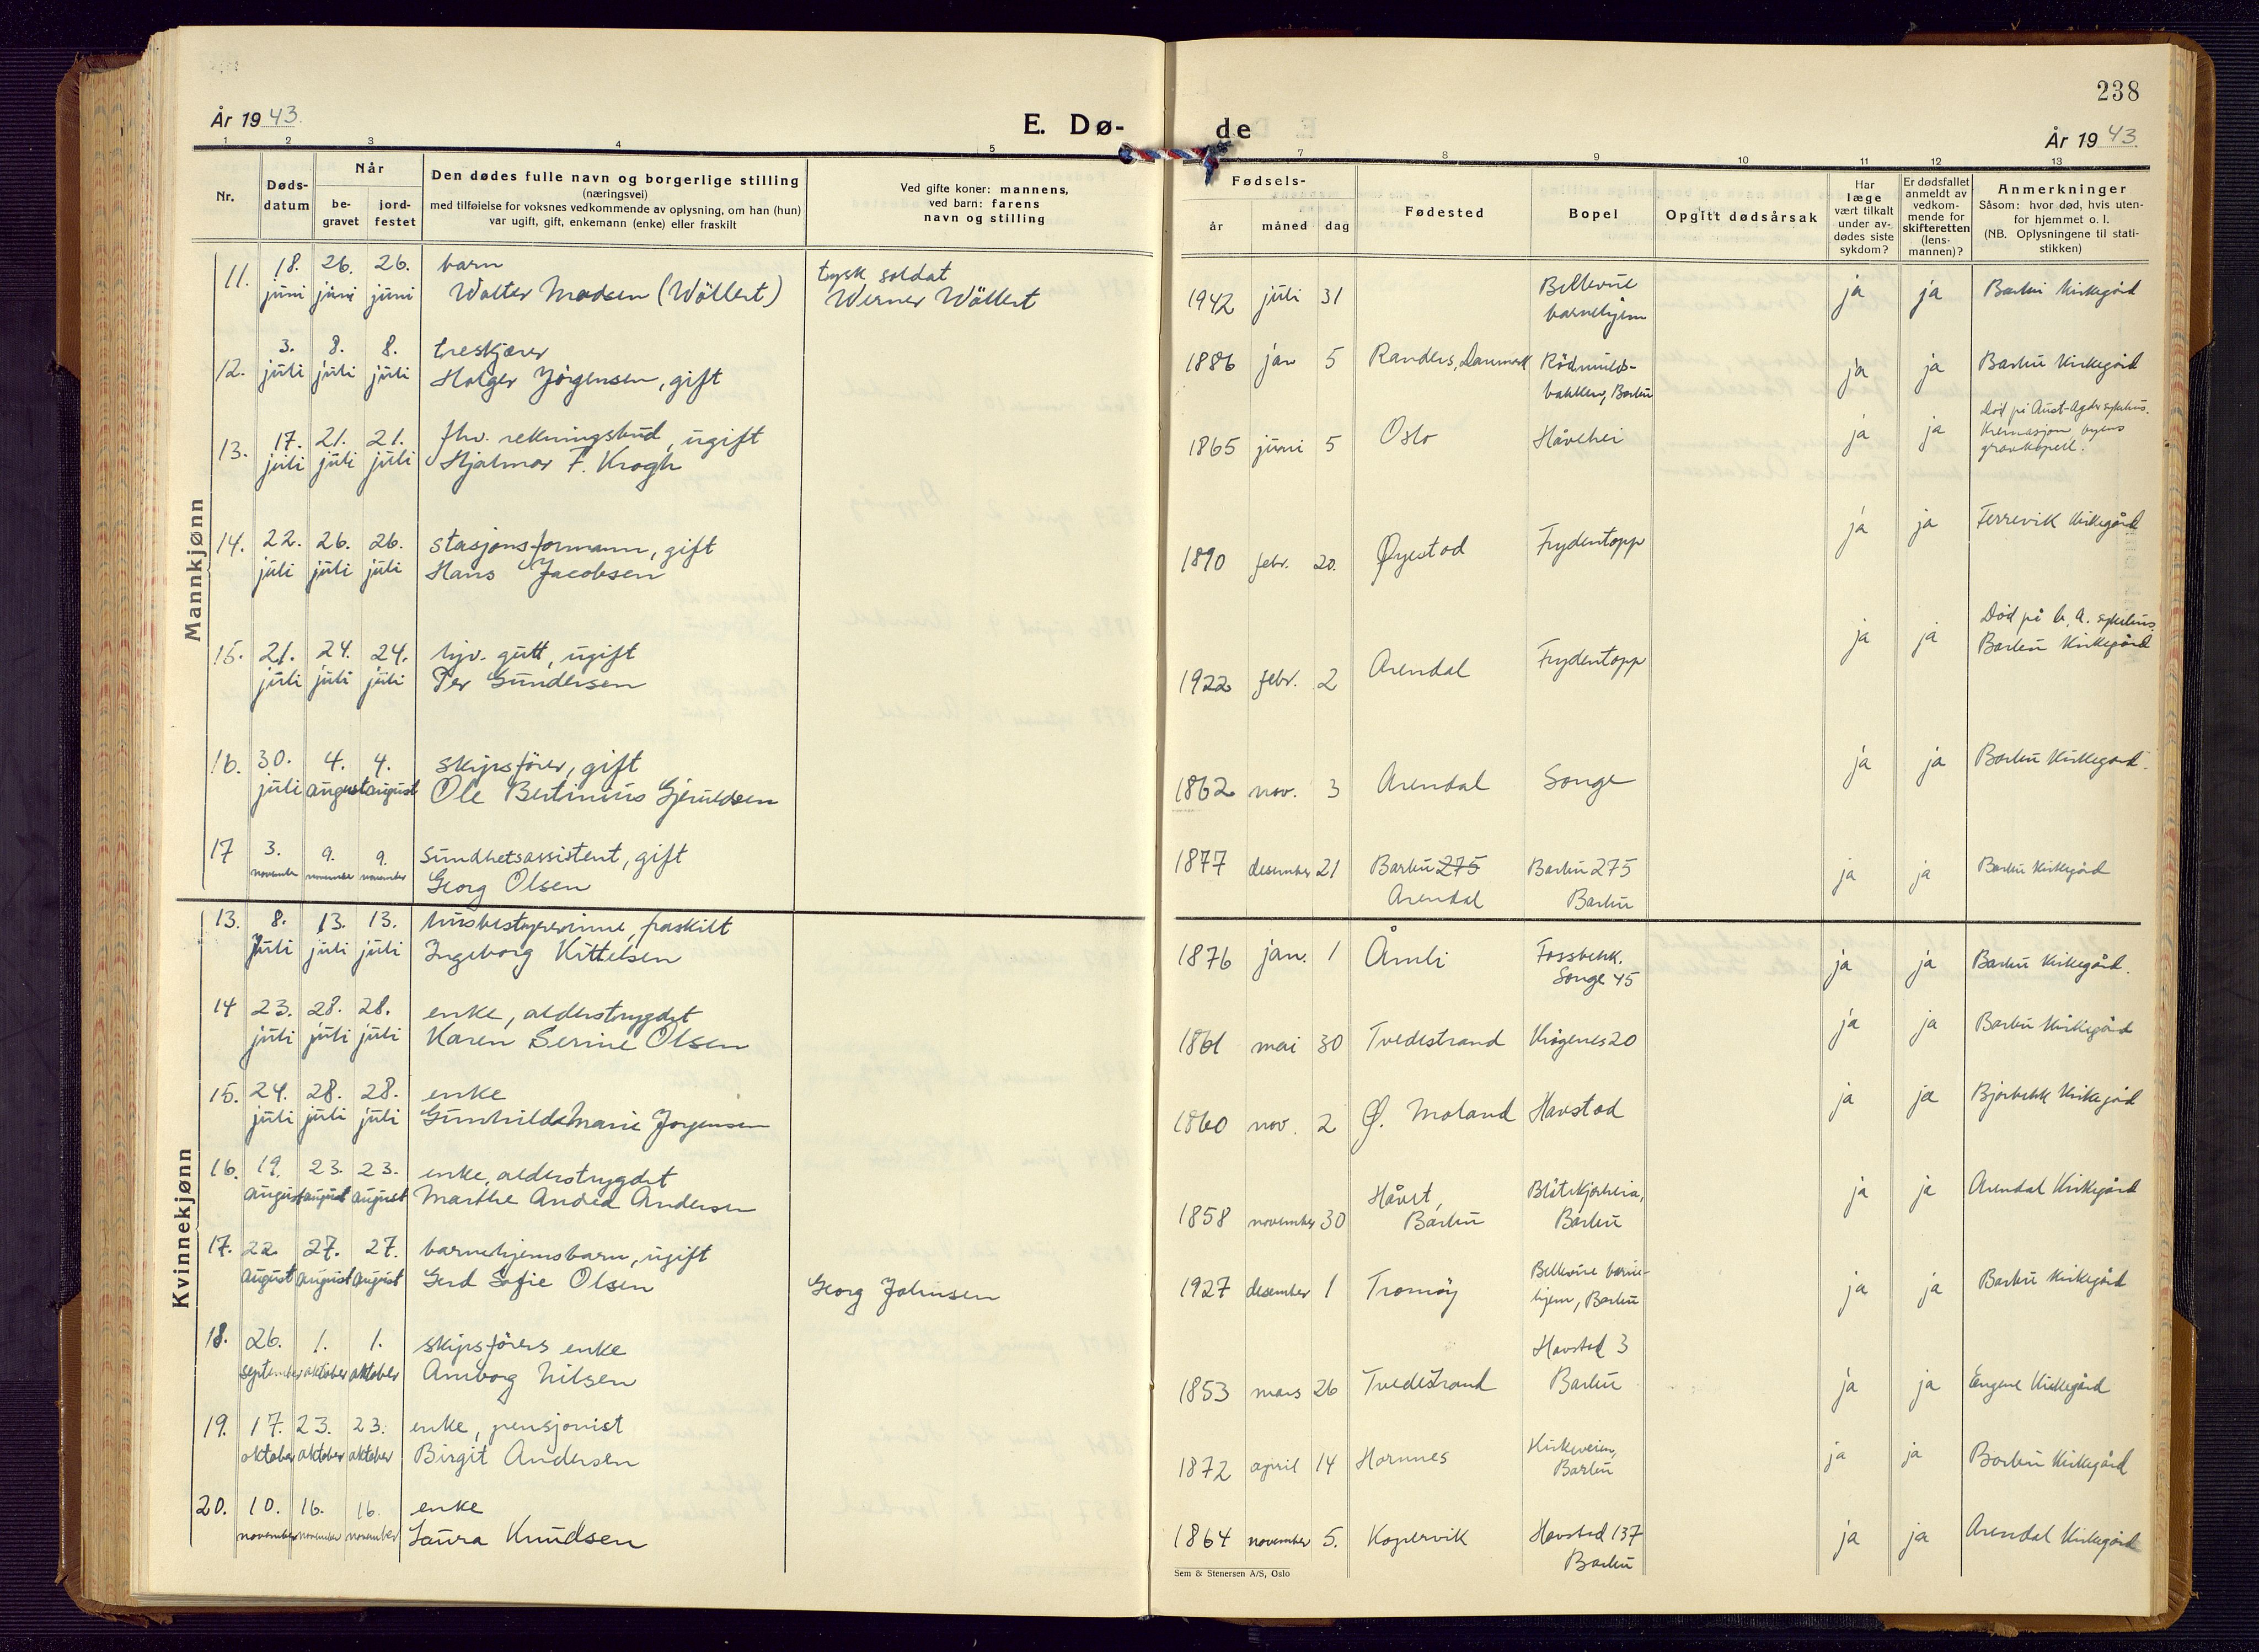 238
År 1943.
E. Dø-
de
År 1943.
1 2 3 4 5 7 8 9 10 11 12 13
Nr.
Døds-
datum
Når
be-
gravet
jord-
festet
Den dødes fulle navn og borgerlige stilling
(næringsvei)
med tilføielse for voksnes vedkommende av oplysning, om han (hun)
var ugift, gift, enkemann (enke) eller fraskilt
Ved gifte koner: mannens,
ved barn: farens
navn og stilling
Fødsels-
år måned dag
Fødested
Bopel
Opgitt dødsårsak
Har
læge
vært tilkalt
under av-
dødes siste
sykdom?
Er dødsfallet
anmeldt av
vedkom-
mende for
skifteretten
(lens-
mannen)?
Anmerkninger
Såsom: hvor død, hvis uten-
for hjemmet o. l.
(NB. Oplysningene til stati-
stikken)
Mannkjønn
11. 18. 26. 26. barn tysk soldat Bellevue
juni juni juni Walter Madsen (Wöllert) Werner Wöllert 1942 juli 31 barnehjem ja ja Barbu kirkegård
12. 3. 8. 8. treskjærer
juli juli juli Holger Jörgensen, gift 1886 jan 5 Randers, Danmark Rödmyrs-
bakken, Barbu ja ja Barbu kirkegård
13. 17. 21. 21. fhv. rekningsbud, ugift
juli juli juli Hjalmar F. Krogh 1865 juni 5 Oslo Håvehei ja ja Död på Aust-Agder sykehus.
Kremasjon byens
gravkapell.
14. 22. 26. 26. stasjonsformann, gift
juli juli juli Hans Jacobsen 1890 febr. 20. Øyestad Frydentopp ja ja Ferrevik kirkegård
15. 21. 24. 24. hjv. gutt, ugift
juli juli juli Per Gundersen 1922 febr. 2 Arendal Frydentopp ja ja Död på A. A. sykehus.
Barbu kirkegård
16. 30. 4. 4. skipsförer, gift
juli august august Ole Bertinius Gjeruldsen 1862 nov. 3 Arendal Songe ja ja Barbu kirkegård.
17 3. 9. 9. sundhetsassistent, gift
november november november Georg Olsen 1877 desember 21 Barbu 275 Barbu 275 ja ja Barbu kirkegård
Arendal Barbu
Kvinnekjønn
13. 8. 13. 13. husbestyrerinne, fraskilt
juli juli juli Ingeborg Kittelsen 1876 jan. 1 Åmli Fossbekk.
Songe 45 ja ja Barbu kirkegård.
14 23. 28. 28. enke, alderstrygdet
juli juli juli Karen Serine Olsen 1861 mai 30 Tvedestrand Krögenes 20 ja ja Barbu kirkegård
15. 24. 28. 28. enke
juli juli juli Gunhilda Marie Jorgensen 1860 nov. 2 Ø. Moland Havstad ja ja Bjorbekk kirkegård
16. 19. 23. 23. enke, alderstrygdet
august august august Marthe Andrea Andersen 1858 november 30 Håvet, Blötekjerheia,
Barbu Barbu ja ja Arendal kirkegård
17. 22. 27. 27. barnehjemsbarn, ugift
august august august Gerd Sofie Olsen Georg Johnsen 1927 desember 1 Tromöy Bellevue barne-
hjem, Barbu ja ja Barbu kirkegård
18. 26. 1. 1. skipsförers enke Havstad 3
september oktober oktober Amborg Nilsen 1853 mars 26 Tvedestrand Barbu ja ja Engene kirkegård
19. 17. 23. 23. enke, pensjonist
oktober oktober oktober Birgit Andersen 1872 april 14 Hornnes Kirkeveien,
Barbu ja ja Barbu kirkegård
20. 10. 16. 16. enke
november november november Laura Knudsen 1864 november 5. Kopervik Havstad 137
Barbu ja ja Arendal kirkegård
Sem & Stenersen A/S, Oslo